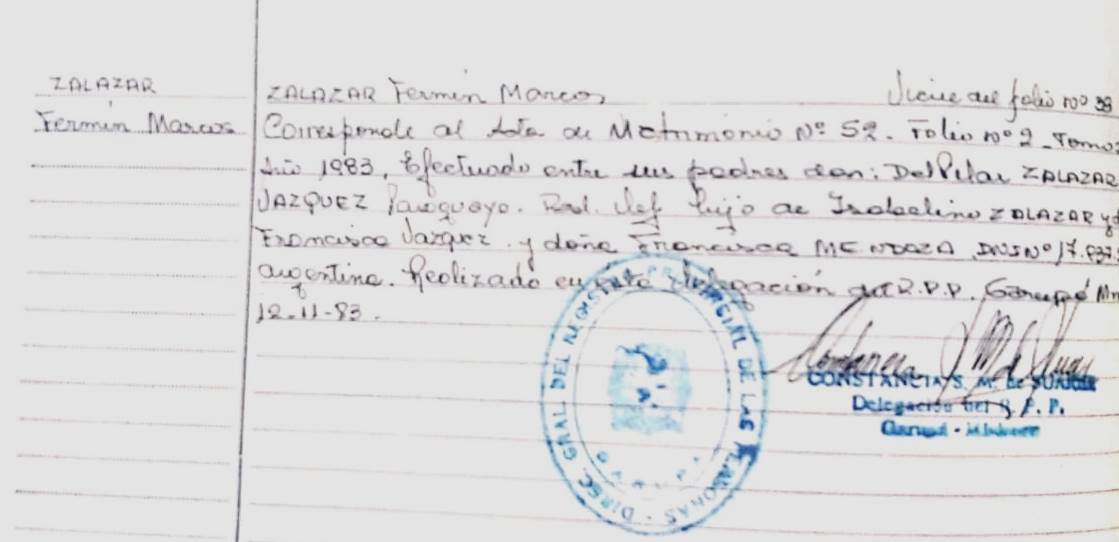 ZALAZAR
Fermin Marcos
ZALAZAR Fermin Marcos Viene del folio nº 38
Corresponde al Acta de Matrimonio Nº 52. Folio nº 2 - Tomo
Año 1983, Efectuado entre sus padres don: Del Pilar ZALAZAR
VAZQUEZ Paraguayo. hijo de Isabelino ZALAZAR y
Francisca Vazquez y doña Francisca MENDOZA DNI Nº 17.
argentina. Realizado en esta Delegación del R.P.P. Garupá Mn
12-11-83.
DIREC. GRAL DEL REGISTRO PROVINCIAL DE LAS PERSONAS
CONSTANCIA S. M. de
Delegación del R. P. P.
Garupá - Misiones